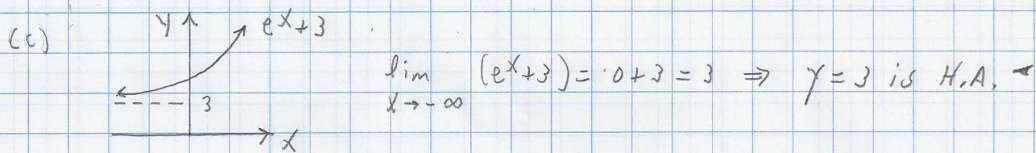 (c)
Y
e^x+3
3
X
lim (e^x+3) = 0+3 = 3 ⇒ Y=3 is H.A.
X→-∞